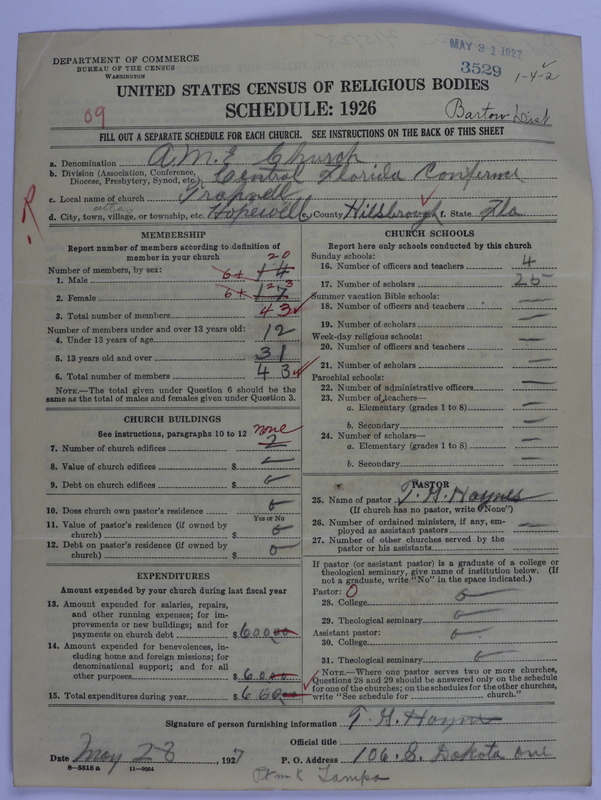 DEPARTMENT OF COMMERCE
BUREAU OF THE CENSUS
WASHINGTON
MAY 31 1927
3529
1-4-2
UNITED STATES CENSUS OF RELIGIOUS BODIES
SCHEDULE: 1926
09
Bartow Dist
FILL OUT A SEPARATE SCHEDULE FOR EACH CHURCH. SEE INSTRUCTIONS ON THE BACK OF THIS SHEET
a. Denomination A.M.E Church
b. Division (Association, Conference, Diocese, Presbytery, Synod, etc.) Central Florida Conference
c. Local name of church Trapnell
R
d. City, town, village, or township, etc. Hopewell e. County Hilsbrough f. State Fla
MEMBERSHIP
Report number of members according to definition of member in your church
Number of members, by sex:
1. Male 6+ 14 20
2. Female 6+ 17 23
3. Total number of members 43
Number of members under and over 13 years old:
4. Under 13 years of age 12
5. 13 years old and over 31
6. Total number of members 43
NOTE.—The total given under Question 6 should be the same as the total of males and females given under Question 3.
CHURCH BUILDINGS
See instructions, paragraphs 10 to 12
none
7. Number of church edifices 2
8. Value of church edifices $
9. Debt on church edifices $ 0
10. Does church own pastor's residence 0
Yes or No
11. Value of pastor's residence (if owned by church) $ 0
12. Debt on pastor's residence (if owned by church) $ 0
EXPENDITURES
Amount expended by your church during last fiscal year
13. Amount expended for salaries, repairs, and other running expenses; for improvements or new buildings; and for payments on church debt $
14. Amount expended for benevolences, including home and foreign missions; for denominational support; and for all other purposes $
15. Total expenditures during year $
CHURCH SCHOOLS
Report here only schools conducted by this church
Sunday schools:
16. Number of officers and teachers 4
17. Number of scholars 25
Summer vacation Bible schools:
18. Number of officers and teachers —
19. Number of scholars —
Week-day religious schools:
20. Number of officers and teachers —
21. Number of scholars —
Parochial schools:
22. Number of administrative officers —
23. Number of teachers—
a. Elementary (grades 1 to 8) —
b. Secondary —
24. Number of scholars—
a. Elementary (grades 1 to 8) —
b. Secondary —
PASTOR
25. Name of pastor T. H. Haynes
(If church has no pastor, write "None")
26. Number of ordained ministers, if any, employed as assistant pastors —
27. Number of other churches served by the pastor or his assistants
If pastor (or assistant pastor) is a graduate of a college or theological seminary, give name of institution below. (If not a graduate, write "No" in the space indicated.)
Pastor: 0
28. College 0
29. Theological seminary 0
Assistant pastor:
30. College 0
31. Theological seminary 0
NOTE.—Where one pastor serves two or more churches, Questions 28 and 29 should be answered only on the schedule for one of the churches; on the schedules for the other churches, write "See schedule for church."
Signature of person furnishing information T. H. Haynes
Official title
Date May 28, 1927 P. O. Address 106 S. Dakota ave
8—5518 a 11—9054
Tampa